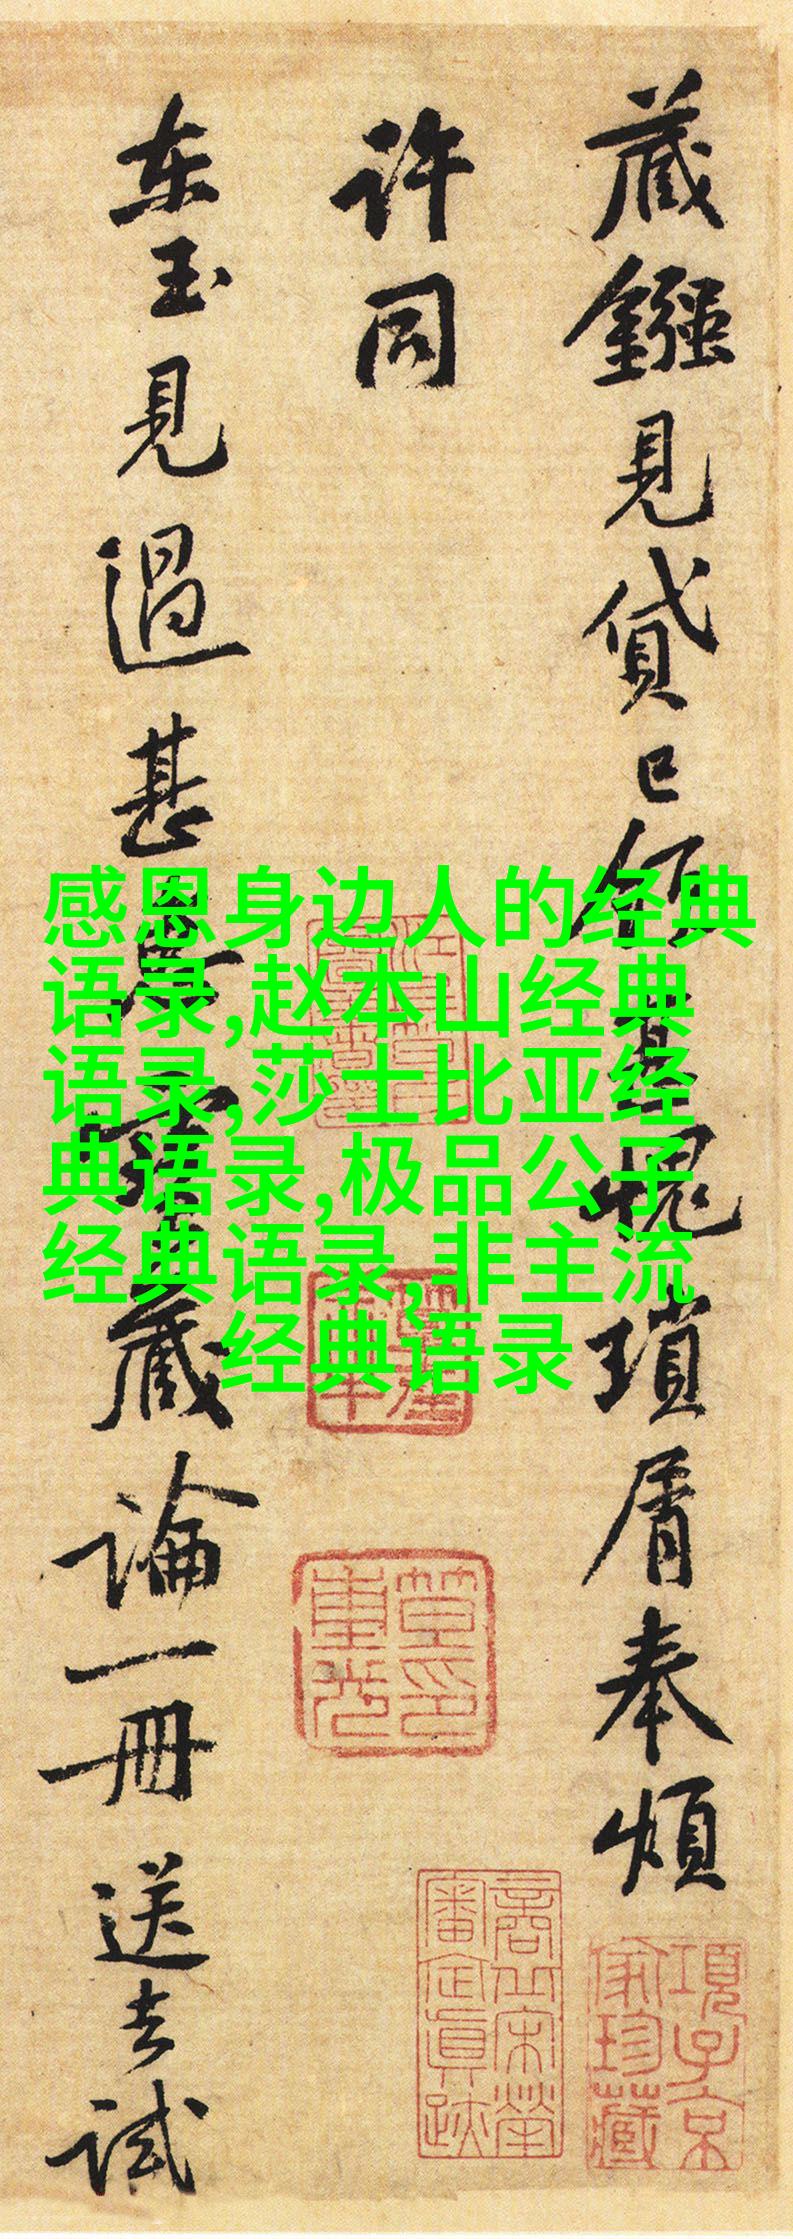 藏鏹見貸已領甚愧瑣屑奉煩
許同
东玉見過甚寶藏論一冊送去試
感恩身边人的经典
语录,赵本山经典
语录,莎士比亚经
典语录,极品公子
经典语录,非主流
经典语录
笪重光印
商丘宋犖審定真跡
項子京家珍藏